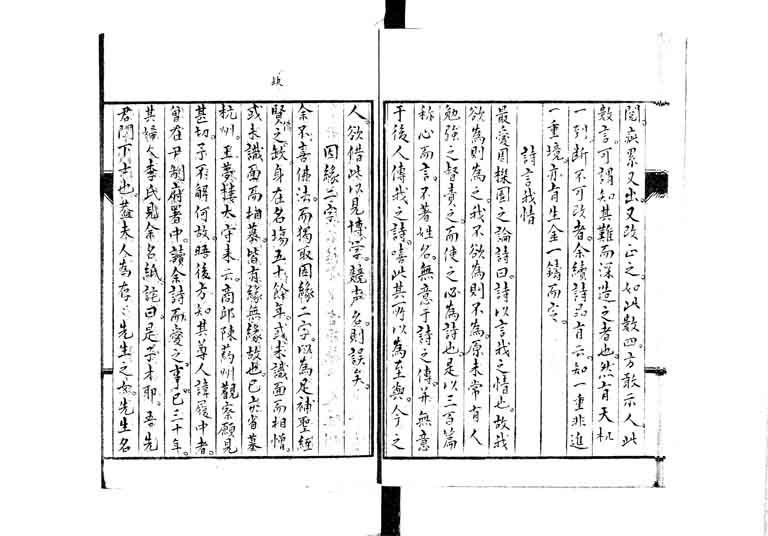 閱。疵累又出。又改正之。如此數四。方敢示人。此
數言。可謂知其難而深造之者也。然有天機
一到。斷不可改者。余續詩品有云。知一重非。進
一重境。亦有生金。一鑄而定。
詩言我情
最愛周櫟園之論詩曰。詩以言我之情也。故我
欲為則為之。我不欲為則不為。原未常有人
勉強之。督責之。而使之必為詩也。是以三百篇
稱心而言。不著姓名。無意于詩之傳。并無意
于後人傳我之詩。嘻。此其所以為至與。今之
人。欲借此以見博學。競声名。則誤矣。
因緣二字
余不喜佛法。而獨取因緣二字。以為足補聖經
賢傳之缺。身在名場五十餘年。或未識面而相憎。
或未識面而相慕。皆有緣無緣故也。己亥省墓
杭州。王夢樓太守来云。商邱陳药洲觀察。願見
甚切。予不解何故。晤後方知其尊人諱履中者。
曾在尹制府署中。讀余詩而愛之。事已三十年。
其婦人李氏見余名紙。詫曰。是子才耶。吾先
君門下士也。蓋夫人為存存先生之女。先生名